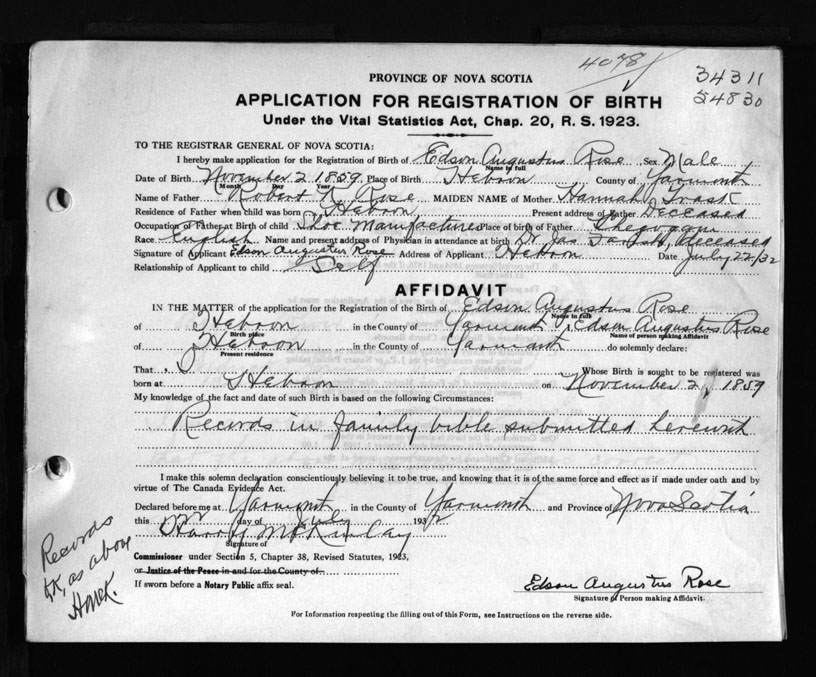 4078
34311
54830
PROVINCE OF NOVA SCOTIA
APPLICATION FOR REGISTRATION OF BIRTH
Under the Vital Statistics Act, Chap. 20, R. S. 1923.
TO THE REGISTRAR GENERAL OF NOVA SCOTIA:
I hereby make application for the Registration of Birth of Edson Augustus Rose Sex Male
Name in full
Date of Birth November 2 1859 Place of Birth Hebron County of Yarmouth
Month Day Year
Name of Father Robert R. Rose MAIDEN NAME of Mother Hannah Trask
Residence of Father when child was born Hebron Present address of Father Deceased
Occupation of Father at Birth of child Shoe Manufacturer Place of birth of Father Chegoggin
Race English Name and present address of Physician in attendance at birth Dr Jas Deceased
Signature of Applicant Edson Augustus Rose Address of Applicant Hebron Date July 22/32
Relationship of Applicant to child Self
AFFIDAVIT
IN THE MATTER of the application for the Registration of the Birth of Edson Augustus Rose
Name in full
of Hebron in the County of Yarmouth I, Edson Augustus Rose
Birth place Name of person making Affidavit
of Hebron in the County of Yarmouth do solemnly declare:
Present residence
That I Whose Birth is sought to be registered was
born at Hebron on November 2, 1859
My knowledge of the fact and date of such Birth is based on the following Circumstances:
Records in family bible submitted herewith
I make this solemn declaration conscientiously believing it to be true, and knowing that it is of the same force and effect as if made under oath and by
virtue of The Canada Evidence Act.
Declared before me at Yarmouth in the County of Yarmouth and Province of Nova Scotia
this 22 day of July 1932
Harry McKinlay
Signature of
Commissioner under Section 5, Chapter 38, Revised Statutes, 1923,
or Justice of the Peace in and for the County of
If sworn before a Notary Public affix seal.
Records
OK, as above
Edson Augustus Rose
Signature of Person making Affidavit.
For Information respecting the filling out of this Form, see Instructions on the reverse side.